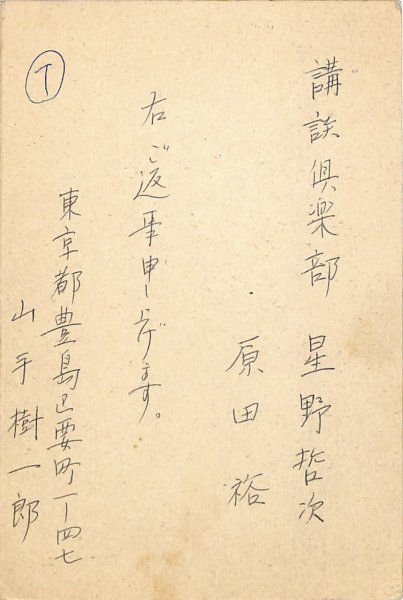 講談倶楽部 星野哲次
原田裕
右ご返事申し上げます。
東京都豊島区要町一ノ四七
山手樹一郎
T